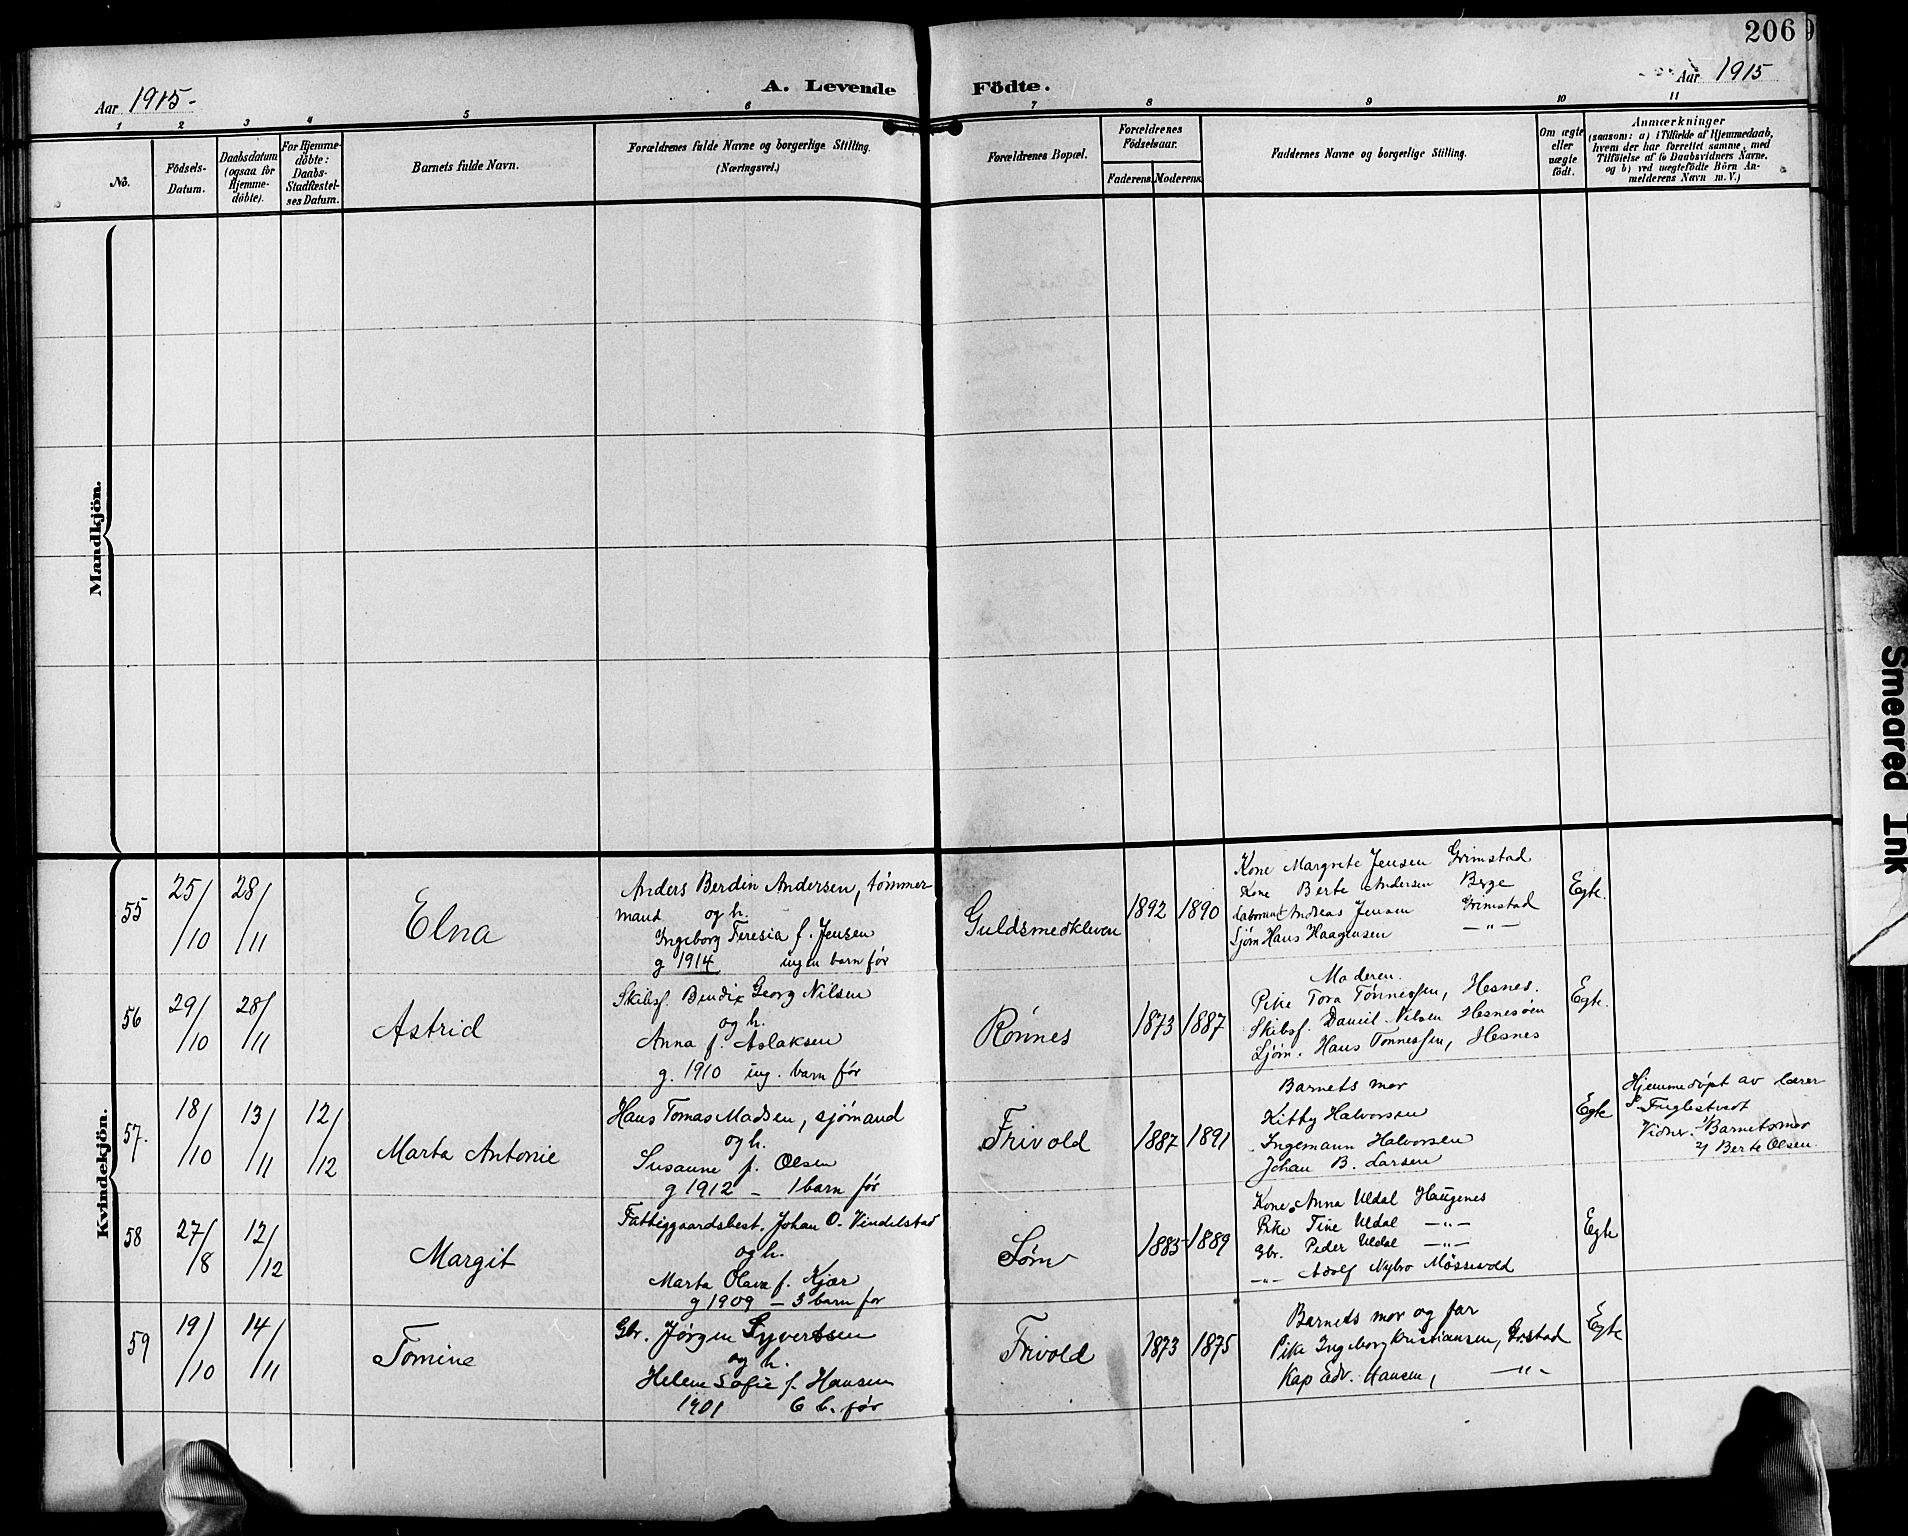 206
Aar 1915-
A. Levende Födte.
Aar 1915
1 2 3 4 5 6 7 8 9 10 11
No.
Födsels-
Datum.
Daabsdatum
(ogsaa for
Hjemme-
döbte).
For Hjemme-
döbte:
Daabs-
Stadfæstel-
ses Datum.
Barnets fulde Navn.
Forældrenes fulde Navne og borgerlige Stilling.
(Næringsvei.)
Forældrenes Bopæl.
Forældrenes
Födselsaar.
Faderens. Moderens.
Faddernes Navne og borgerlige Stilling.
Om ægte
eller
uægte
födt.
Anmærkninger
(saasom: a) i Tilfælde af Hjemmedaab,
hvem der har forrettet samme, med
Tilföielse af to Daabsvidners Navne,
og b) ved uægtefödte Börn An-
melderens Navn m. V.)
Mandkjön.
Kvindekjön.
55
25/10
28/11
Elna
Anders Berdin Andersen, tømmer
mand og h.
Ingeborg Teresia f. Jensen
g 1914 ingen barn før
Guldsmedkleven
1892
1890
Kone Margrete Jensen Grimstad
Kone Berte Andersen Berge
Andreas Jensen Grimstad
Sjøm Hans Haagensen —"—
Egte.
56
29/10
28/11
Astrid
Skibsf. Bendix Georg Nilsen
og h.
Anna f. Aslaksen
g. 1910 ing. barn før
Rønnes
1873
1887
Moderen.
Pike Tora Tønnessen, Hesnes.
Skibsf. Daniel Nilsen Hesnesøen
Sjøm. Hans Tønnessen, Hesnes
Egte.
57.
18/10
13/11
12/12
Marta Antonie
Hans Tomas Madsen, sjömand
og h.
Susanne f. Olsen
g 1912 — 1 barn før
Frivold
1887
1891
Barnets mor
Kitty Halvorsen
Ingemann Halvorsen
Johan B. Larsen
Egte
Hjemmedøpt av lærer
Fuglestvedt
Vidner. 1/ Barnets mor
2/ Berte Olsen.
58
27/8
12/12
Margit
Fattiggaardsbest. Johan O. Vindelstad
og h.
Marta Olava f. Kjær
g 1909 — 3 barn før
Søm
1883
1889
Kone Anna Uldal Haugenes
Pike Tine Uldal —"—
Gbr. Peder Uldal —"—
—"— Adolf Nybro Møssevold
Egte
59
19/10
14/11
Tomine
Gbr. Jørgen Syvertsen
og h.
Helene Sofie f. Hansen
1901 6 b. før
Frivold
1873
1875
Barnets mor og far
Pike Ingeborg Kristiansen, Grstad
Kap Edv. Hansen, —"—
Egte
Smeared Ink